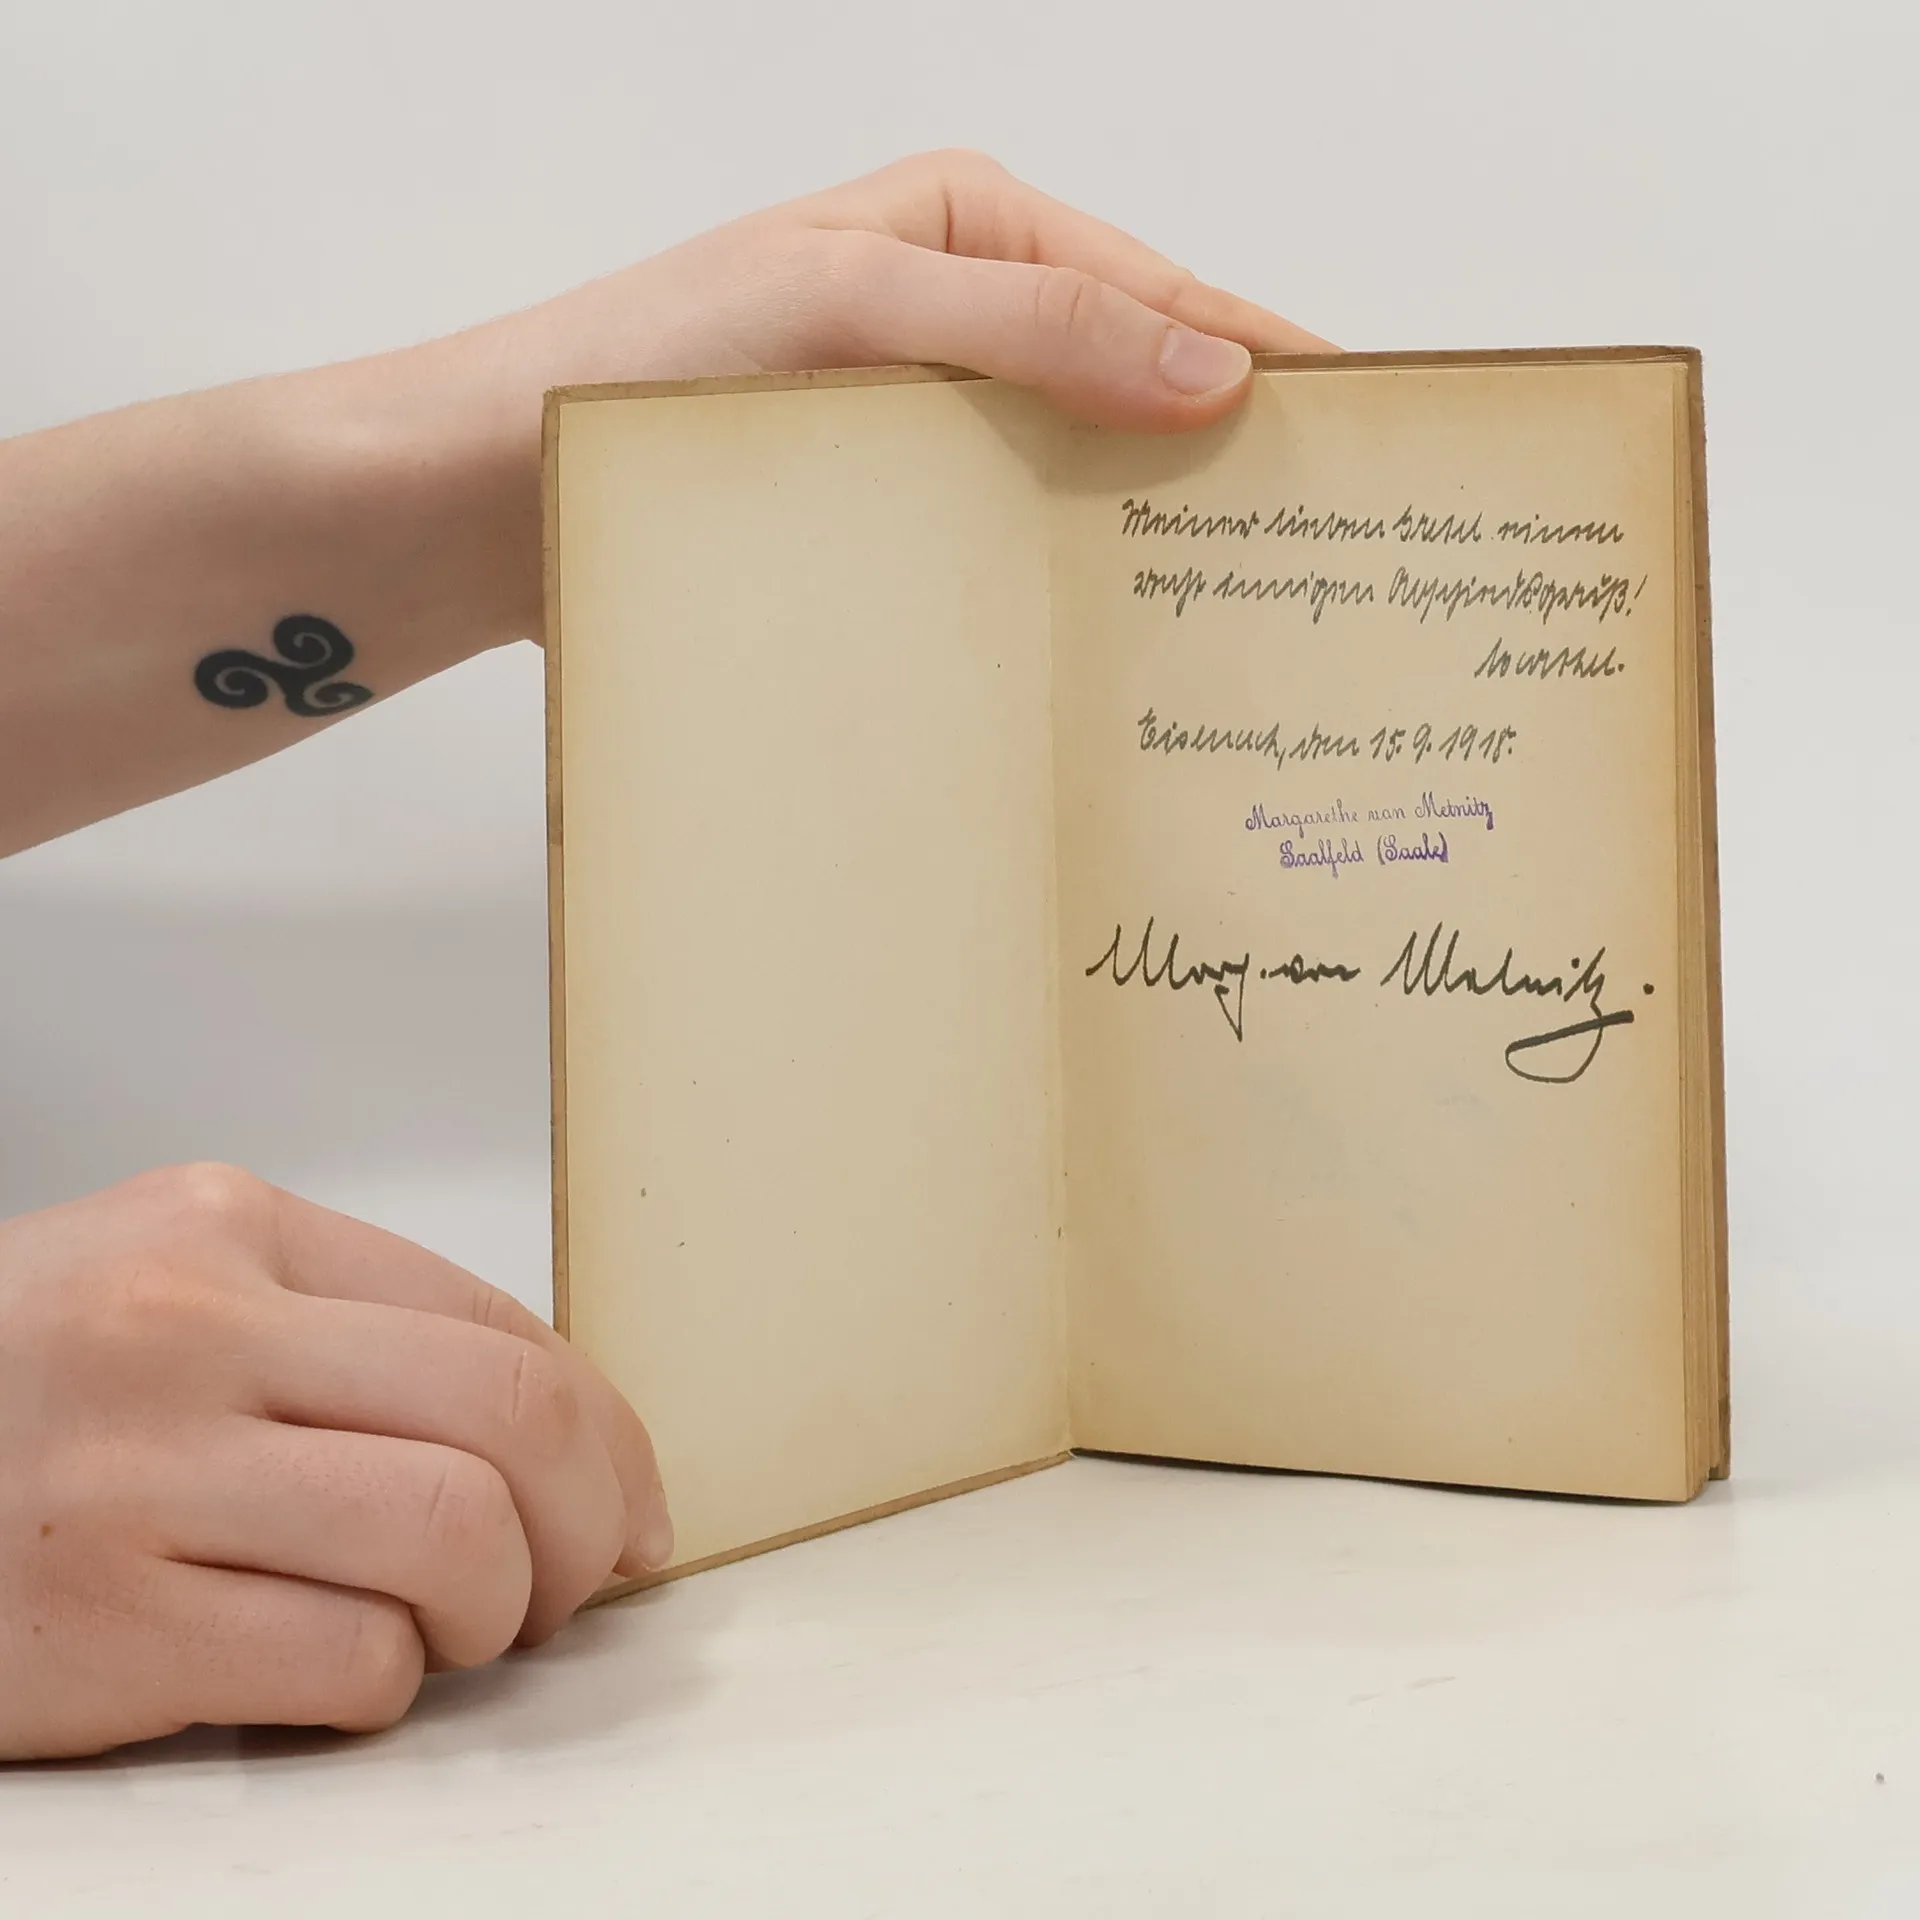 Meiner lieben Gretel einen
recht innigen Abschiedsgruß!
Eisenach, den 15. 9. 1918.
Margarethe von Metnitz
Saalfeld (Saale)
Marg. von Metnitz.